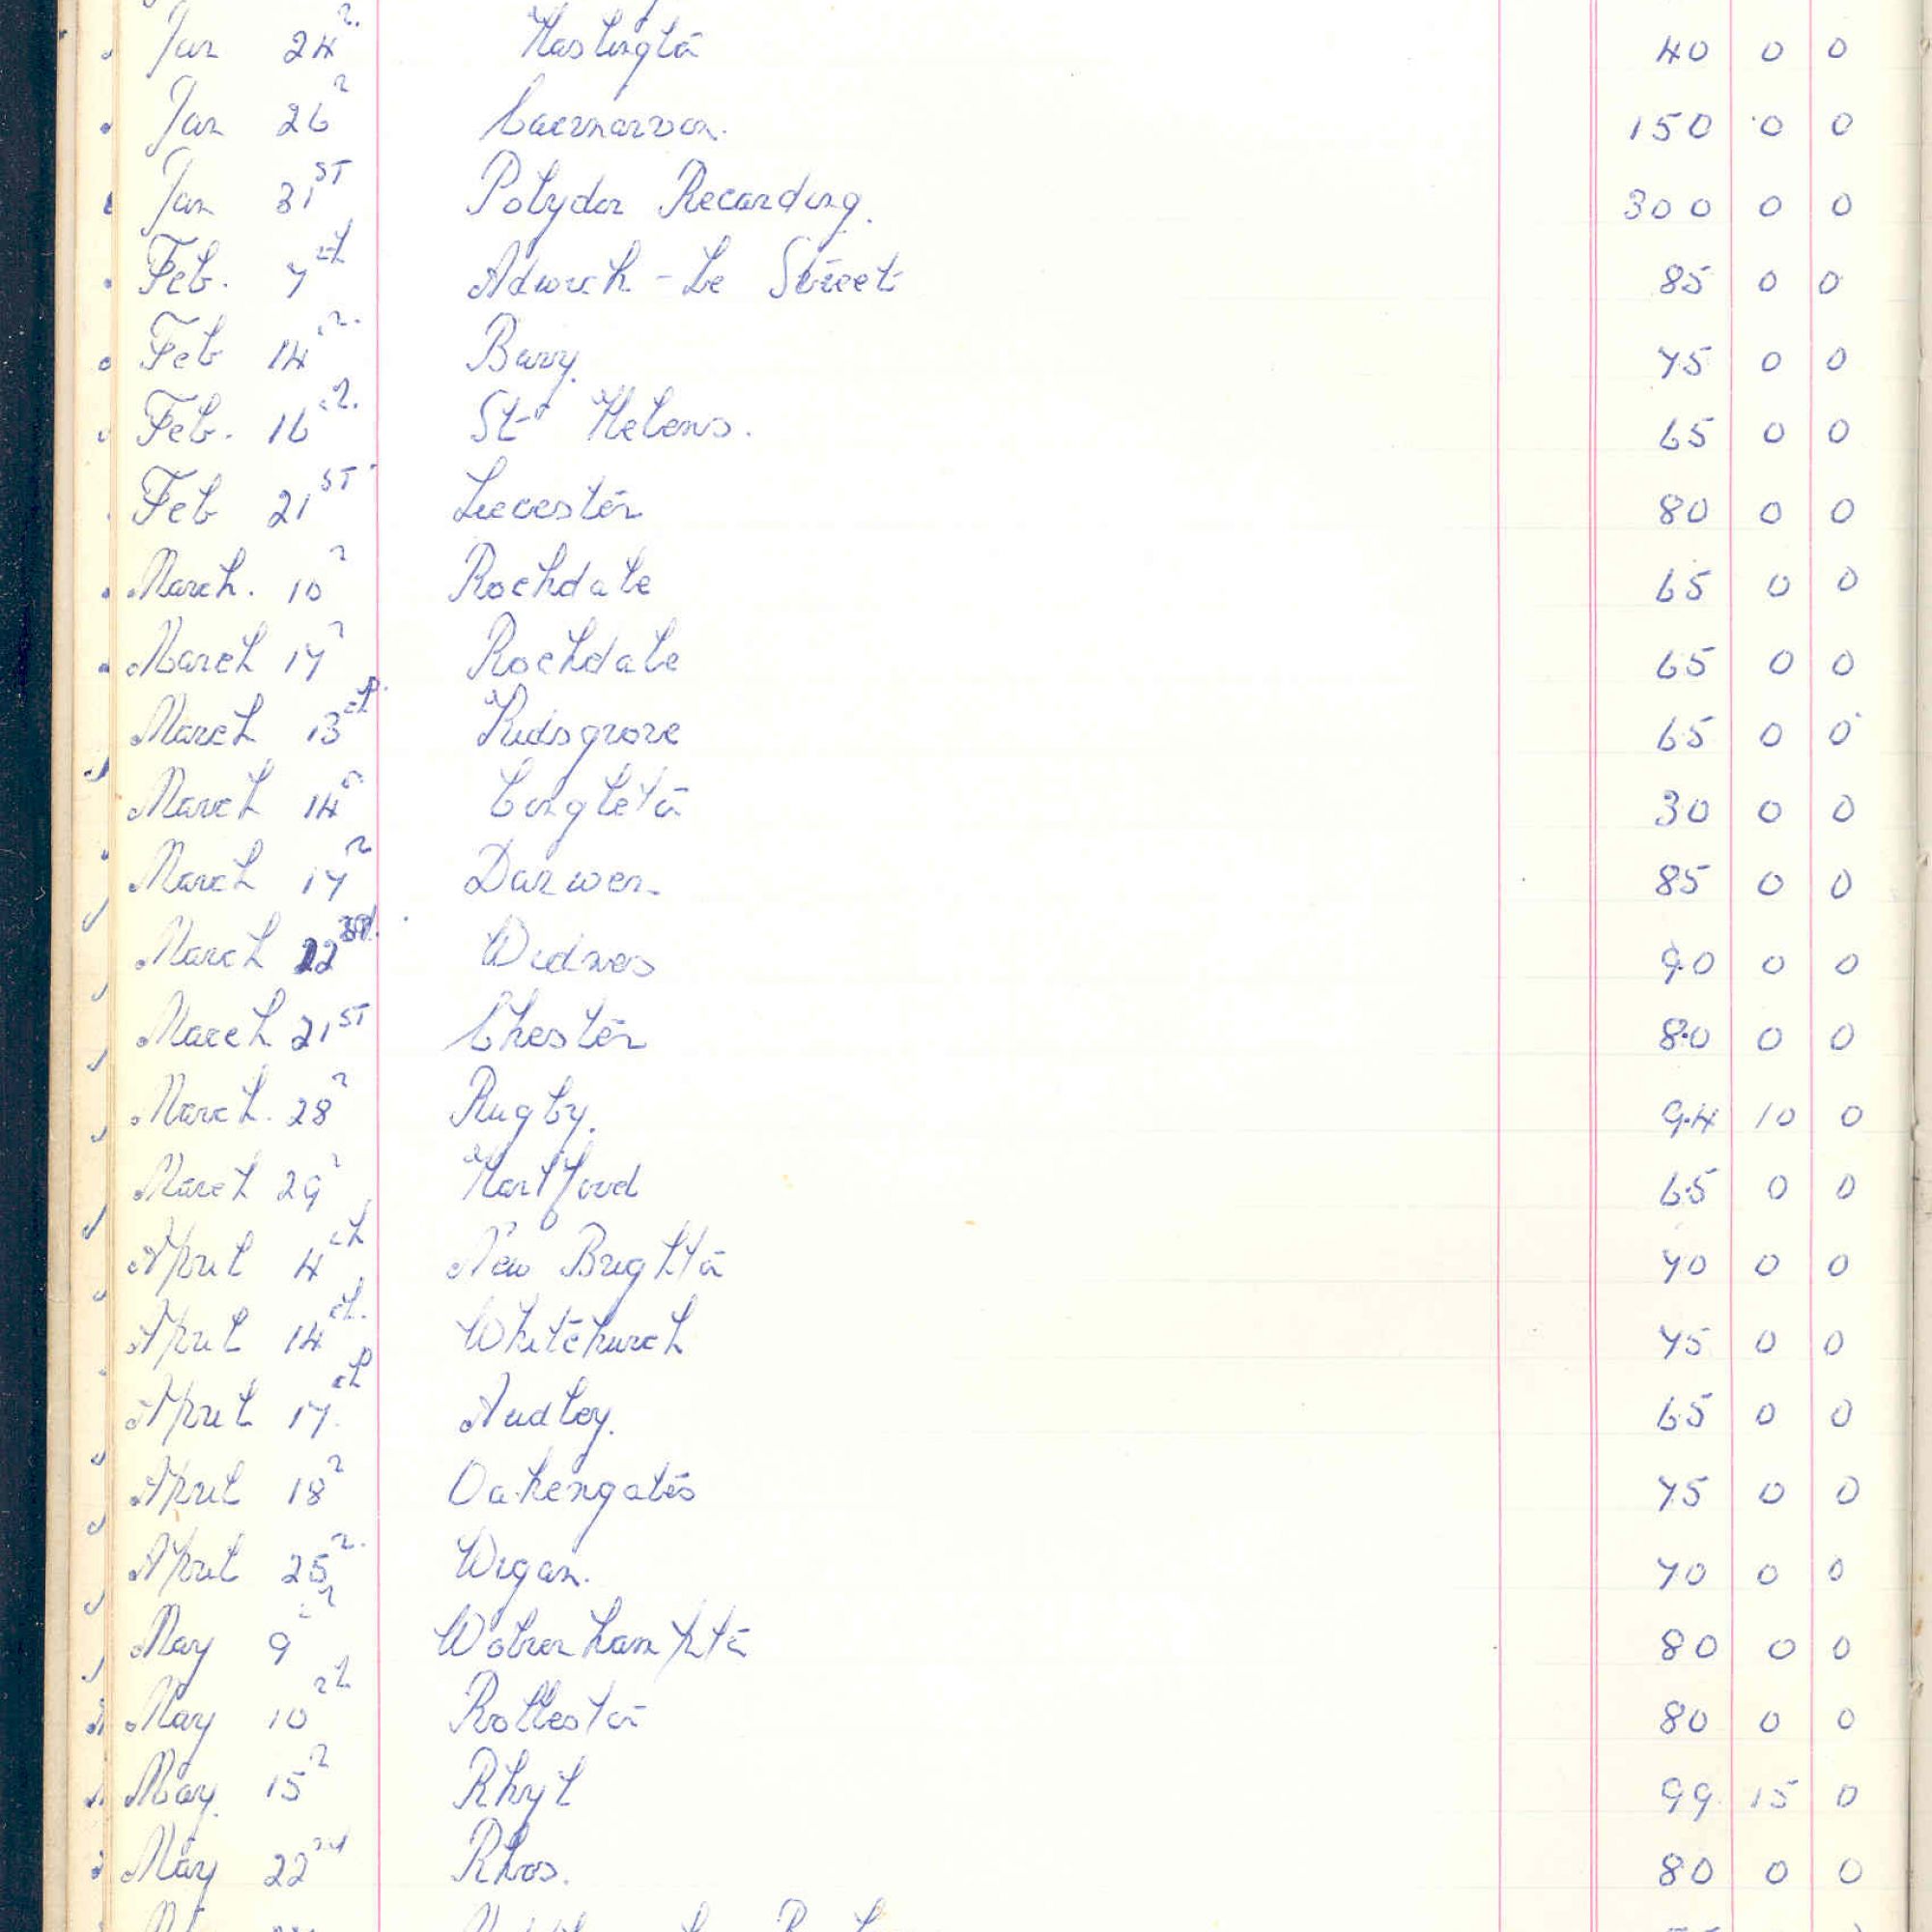 Jan 24th Haslington 40 0 0
Jan 26th Caernarvon. 150 0 0
Jan 31ST Polydor Recording. 300 0 0
Feb. 7th Adwick-Le Street 85 0 0
Feb 14th Barry. 75 0 0
Feb. 16th St Helens. 65 0 0
Feb 21ST Leicester 80 0 0
March. 10th Rochdale 65 0 0
March 17th Rochdale 65 0 0
March 13th Kidsgrove 65 0 0
March 14th Congleton 30 0 0
March 17th Darwen 85 0 0
March 22nd. Widnes 90 0 0
March 21ST Chester 80 0 0
March. 28th Rugby. 94 10 0
March 29th Hartford 65 0 0
April 4th New Brighton 70 0 0
April 14th. Whitchurch 75 0 0
April 17th Audley. 65 0 0
April 18th Oakengates 75 0 0
April 25th. Wigan. 70 0 0
May 9th Wolverhampton 80 0 0
May 10th Rolleston 80 0 0
May. 15th Rhyl 99 15 0
May 22nd Rhos. 80 0 0